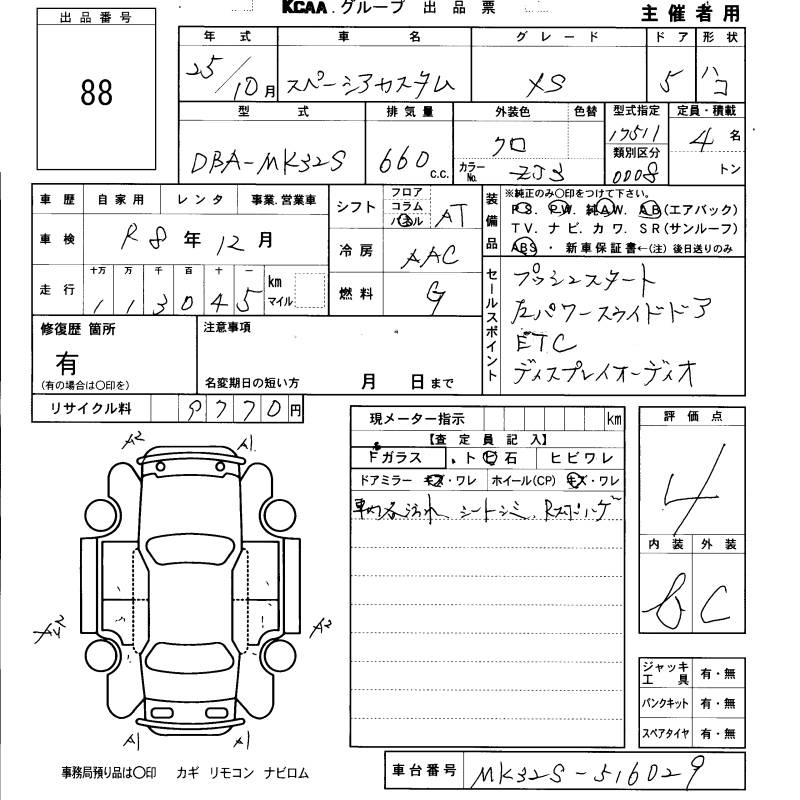 KCAA.グループ 出品票
主催者用
出品番号
88
年式 車名 グレード ドア 形状
25/10月 スペーシアカスタム XS 5 ハコ
型式 排気量 外装色 色替 型式指定 定員・積載
DBA-MK32S 660 c.c. クロ 17511 4名
カラーNo. ZJ3 類別区分 0008 トン
車歴 自家用 レンタ 事業.営業車
シフト フロア コラム パネル AT
装備品 ※純正のみ○印をつけて下さい。
PS. PW. 純AW. AB(エアバック)
TV. ナビ. カワ. SR(サンルーフ)
ABS・新車保証書←(注) 後日送りのみ
車検 R8年12月
冷房 AAC
走行 十万 万 千 百 十 一 km マイル
113045
燃料 G
セールスポイント
プッシュスタート
左パワースライドドア
ETC
ディスプレイオーディオ
修復歴 箇所
有
(有の場合は○印を)
注意事項
名変期日の短い方 月 日まで
リサイクル料 9770円
現メーター指示 km
【査定員記入】
Fガラス . トビ石 ヒビワレ
ドアミラー キズ・ワレ ホイール(CP) キズ・ワレ
車内各汚れ シートシミ
評価点
4
内装 外装
B C
A2 A1
A2
A1 A1
ジャッキ工具 有・無
パンクキット 有・無
スペアタイヤ 有・無
事務局預り品は○印 カギ リモコン ナビロム
車台番号 MK32S-516029